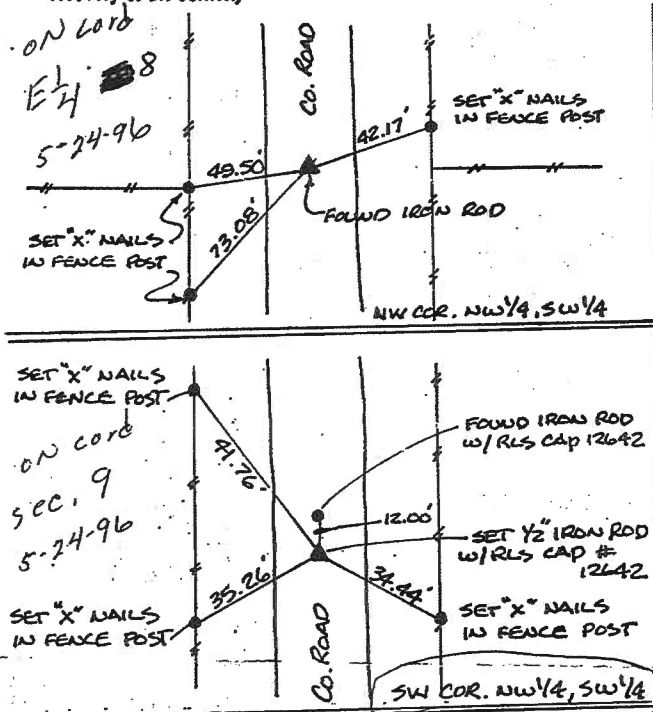 ON Cord
E 1/4 8
5-24-96
CO. ROAD
SET "X" NAILS
IN FENCE POST
49.50'
42.17'
73.08'
FOUND IRON ROD
SET "X" NAILS
IN FENCE POST
NW COR. NW 1/4, SW 1/4
SET "X" NAILS
IN FENCE POST
ON Cord
Sec. 9
5-24-96
41.76'
FOUND IRON ROD
W/RLS CAP 12642
12.00'
SET 1/2" IRON ROD
W/RLS CAP #
12642
35.26'
34.44'
SET "X" NAILS
IN FENCE POST
SET "X" NAILS
IN FENCE POST
CO. ROAD
SW COR. NW 1/4, SW 1/4